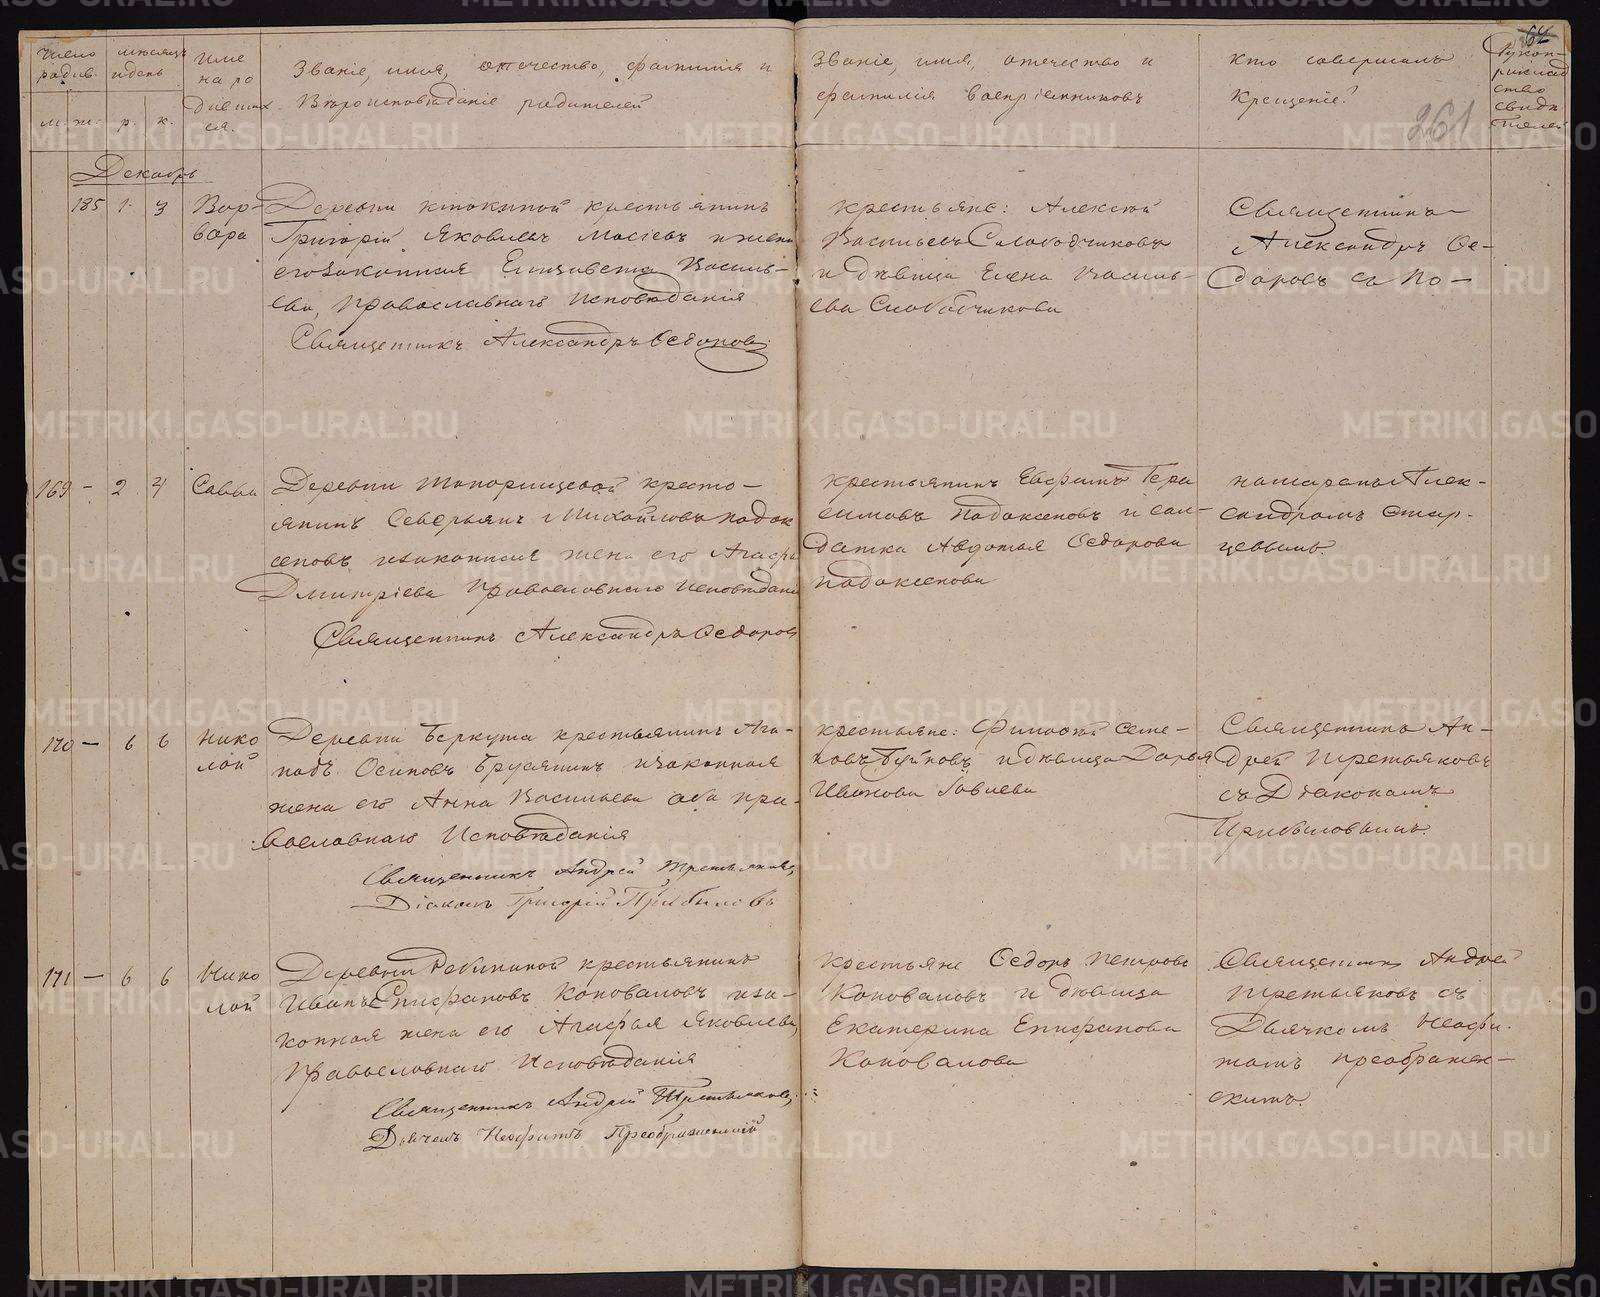 Число родив.
мѣсяцъ и день
Име на ро дивших ся.
Званіе, имя, отчество, фамилія и
Вѣроисповѣданіе родителей
м. ж. р. к.
Званіе, имя, отечество и
фамилія воспріемниковъ
Кто совершалъ
крещеніе?
64
Рукоприкладство свидѣтелей
261
Декабрь
185 1 3 Вар-
вара
Деревни крестьянинъ
Григорій Яковлевъ и жена
его законная Елизавета Василь-
ева, Православнаго Исповѣданія
Священникъ Александръ Ѳедоровъ
крестьяне: Алексѣй
Васильевъ Слободчиковъ
и дѣвица Елена Василь-
ева Слободчикова
Священникъ
Александръ Ѳе-
доровъ
169 - 2 4 Савва
Деревни Топорищевой кресть-
янинъ Северьянъ Михайловъ Падок
сеновъ и законная жена его Агафья
Дмитріева Православнаго Исповѣданія
Священникъ Александръ Ѳедоровъ
крестьянинъ Евфимъ Гера
симовъ Падоксеновъ и сол-
датка Авдотья Ѳедорова
Падоксенова
Александромъ Стар-
цевымъ.
170 - 6 6 Нико
лай
Деревни Беркута крестьянинъ Ага-
Осиповъ Брусянинъ и законная
жена его Анна Васильева оба пра-
вославнаго Исповѣданія
Священникъ Андрей Третьяковъ,
Діаконъ Григорій Прибыловъ
крестьяне: Филофей Семе-
новъ и дѣвица Дарья
Иванова
Священникъ Ан-
дрей Третьяковъ
съ Діакономъ
Прибыловымъ.
171 - 6 6 Нико
лай
Деревни крестьянинъ
Иванъ Епифановъ Коноваловъ и за-
конная жена его Агафья Яковлева,
Православнаго Исповѣданія
Священникъ Андрей Третьяковъ,
Дьячекъ Неофитъ Преображенскій
Крестьяне Ѳедоръ Петровъ
Коноваловъ и дѣвица
Екатерина Епифанова
Коновалова
Священникъ Андрей
Третьяковъ съ
Дьячкомъ Неофи-
томъ Преображен-
скимъ.
METRIKI.GASO-URAL.RU